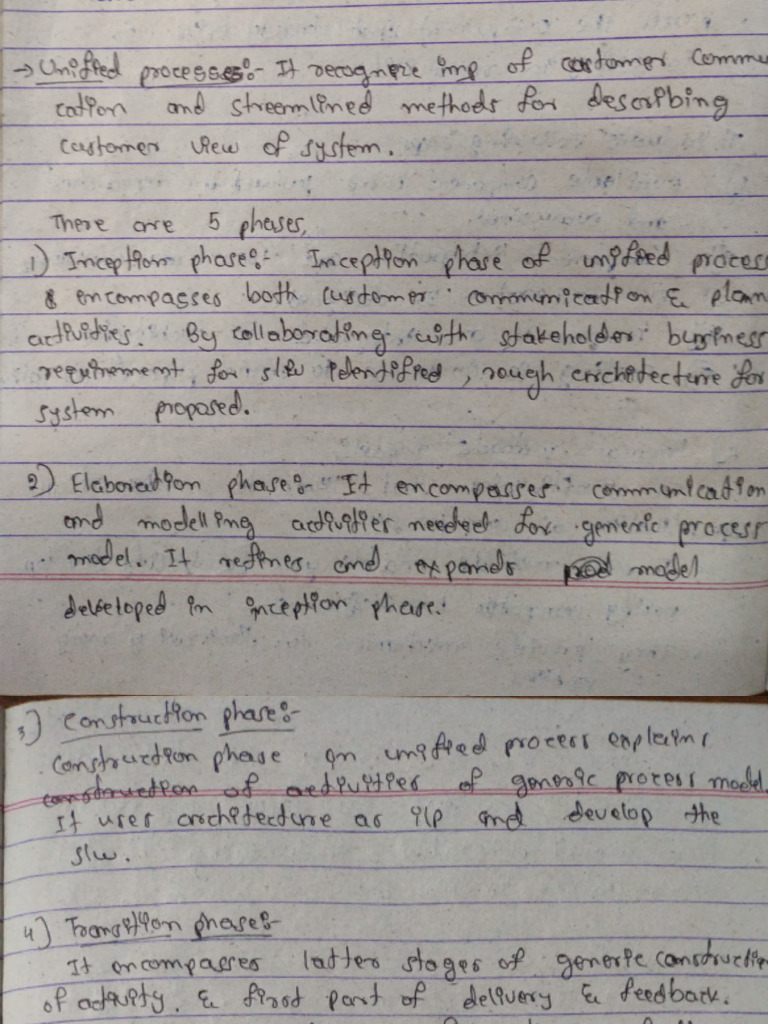 → Unified processes:- It recognize imp of customer commu
cation and streamlined methods for describing
customer view of system.
There are 5 phases,
1) Inception phase:- Inception phase of unified process
& encompasses both customer communication & plann
activities. By collaborating with stakeholder business
requirement for s/w identified, rough architecture for
system proposed.
2) Elaboration phase:- It encompasses communication
and modelling activities needed for generic process
model. It refines and expands model
developed in inception phase.
3) Construction phase:-
Construction phase in unified process explains
construction of activities of generic process model.
It uses architecture as i/p and develop the
s/w.
4) Transition phase:-
It encompasses latter stages of generic constructio
of activity. & first part of delivery & feedback.